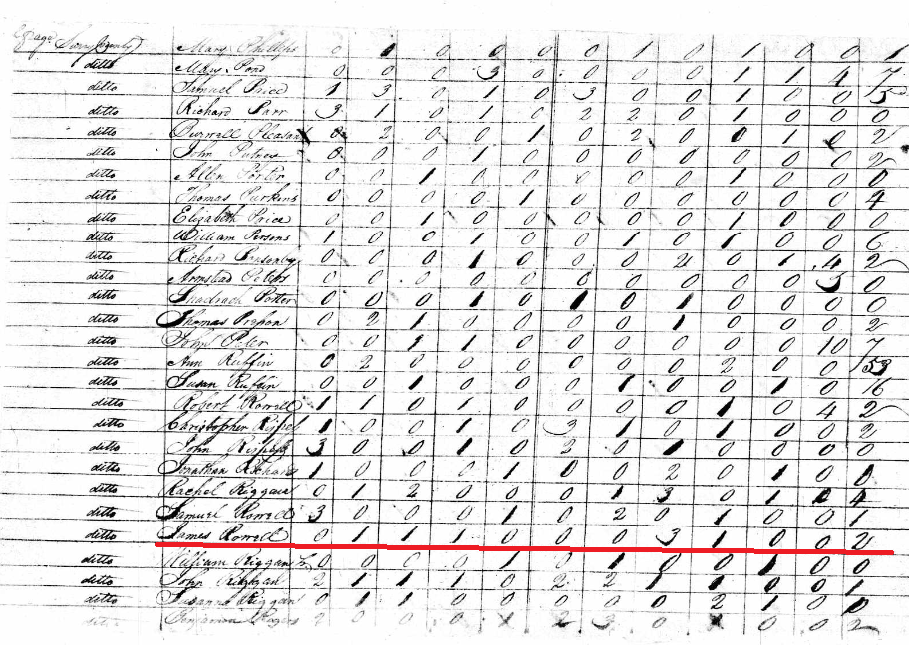 Surry County Mary Phillips 0 1 0 0 0 0 1 0 1 0 0 1
ditto Mary Pond 0 0 0 3 0 0 0 0 1 1 4 7
ditto Samuel Price 1 3 0 1 0 3 0 0 1 0 0 5
ditto Richard Parr 3 1 0 1 0 2 2 0 1 0 0 0
ditto Pleasant 0 2 0 0 1 0 2 0 0 1 0 2
ditto John 0 0 0 1 0 0 0 0 0 0 0 2
ditto Allen Porter 0 0 1 0 0 0 0 0 1 0 0 0
ditto Thomas Purkins 0 0 0 0 1 0 0 0 0 0 0 4
ditto Elizabeth Price 0 0 1 0 0 0 0 0 1 0 0 0
ditto William Persons 1 0 0 1 0 0 1 0 1 0 0 6
ditto Richard 0 0 0 1 0 0 0 0 1 4 2
ditto Armstead Peters 0 0 0 0 0 0 0 0 0 0 3 0
ditto Shadrach Porter 0 0 0 1 0 1 0 1 0 0 0 0
ditto Thomas 0 2 1 0 0 0 0 1 0 0 0 2
ditto John 0 0 1 0 0 0 0 0 0 10 7
ditto Ann Ruffin 0 2 0 0 0 0 0 0 2 0 0 53
ditto Susan Ruffin 0 0 1 0 0 0 1 0 0 1 0 16
ditto Robert Rowell 1 1 0 1 0 0 0 0 1 0 4 2
ditto Christopher 1 0 0 1 0 3 1 0 1 0 0 2
ditto John 3 0 0 1 0 2 0 1 0 0 0 0
ditto Jonathan Richard 1 0 0 0 1 0 0 2 0 1 0 0
ditto Rachel Riggan 0 1 2 0 0 0 1 3 0 1 0 4
ditto Samuel Rowell 3 0 0 0 1 0 2 0 1 0 0 1
ditto James Rowell 0 1 1 1 0 0 0 3 1 0 0 2
ditto William Riggan 0 0 0 0 1 0 1 0 0 1 0 0
ditto John 2 1 1 1 0 2 2 1 1 0 0 1
ditto Susanna Riggan 0 1 1 0 0 0 0 0 2 1 0 0
ditto Benjamin Rogers 2 0 0 0 2 3 0 0 0 2